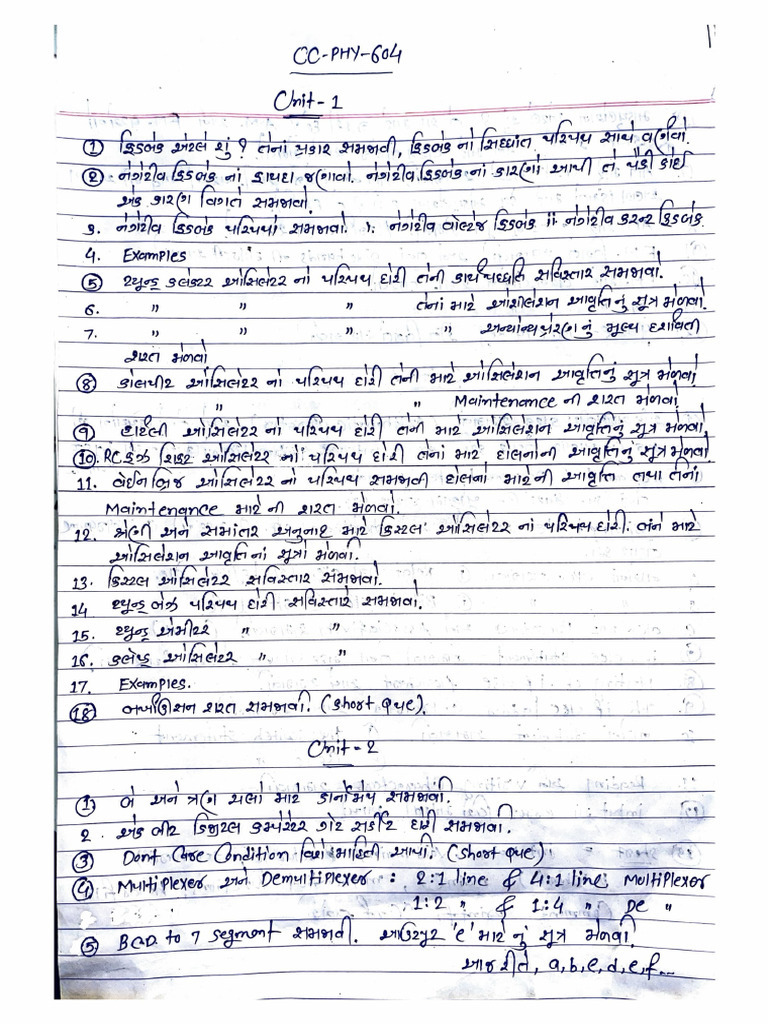 CC-PHY-604
Unit-1
① ફિડબેક એટલે શું? તેનાં પ્રકાર સમજાવી, ફિડબેક નો સિધ્ધાંત પરિપથ સાથે વર્ણવો.
② નેગેટીવ ફિડબેક નાં ફાયદા જણાવો. નેગેટીવ ફિડબેક નાં કારણો આપી તે પૈકી કોઈ
એક કારણ વિગતે સમજાવો.
3. નેગેટીવ ફિડબેક પરિપથો સમજાવો. i. નેગેટીવ વોલ્ટેજ ફિડબેક ii નેગેટીવ કરન્ટ ફિડબેક
4. Examples
⑤ ટ્યુન્ડ કલેક્ટર ઓસિલેટર નો પરિપથ દોરી તેની કાર્યપધ્ધતિ સવિસ્તાર સમજાવો.
6. " " " તેનાં માટે ઓસીલેશન આવૃત્તિનું સૂત્ર મેળવો.
7. " " " " અન્યોન્યપ્રેરણનું મૂલ્ય દર્શાવતી
શરત મેળવો
⑧ કોલપીટ ઓસિલેટર નો પરિપથ દોરી તેની માટે ઓસિલેશન આવૃત્તિનું સૂત્ર મેળવો
" " Maintenance ની શરત મેળવો.
⑨ હાર્ટલી ઓસિલેટર નો પરિપથ દોરી તેની માટે ઓસિલેશન આવૃત્તિનું સૂત્ર મેળવો.
⑩. RC ફેઝ શિફ્ટ ઓસિલેટર નો પરિપથ દોરી તેનાં માટે દોલનોની આવૃત્તિનું સૂત્ર મેળવો
11. વેઈન બ્રિજ ઓસિલેટર નો પરિપથ સમજાવી દોલનો માટેની આવૃત્તિ તથા તેનાં
Maintenance માટેની શરત મેળવો.
12. શ્રેણી અને સમાંતર અનુનાદ માટે ક્રિસ્ટલ ઓસિલેટર નાં પરિપથ દોરી. તેને માટે
ઓસિલેશન આવૃત્તિનાં સૂત્રો મેળવી.
13. ક્રિસ્ટલ ઓસિલેટર સવિસ્તાર સમજાવો.
14 ટ્યુન્ડ બેઝ પરિપથ દોરી સવિસ્તાર સમજાવો.
15. ટ્યુન્ડ એમીટર " "
16. કલેપ્ડ ઓસિલેટર " "
17. Examples.
⑱ બર્ખાઉસન શરત સમજાવી. (Short Que).
Unit-2
① બે અને ત્રણ ચલો માટે કાર્નોમેપ સમજાવી.
2. એક બીટ ડિજીટલ કમ્પેરેટર ગેટ સર્કીટ દોરી સમજાવો.
③ Dont Care Condition વિશે માહિતી આપો. (Short Que)
④ Multiplexer અને Demultiplexer : 2:1 line & 4:1 line Multiplexer
1:2 " & 1:4 " De "
⑤ BCD to 7 Segment સમજાવી. આઉટપુટ 'e' માટે નું સૂત્ર મેળવી.
આજ રીતે, a,b,c,d,e,f...